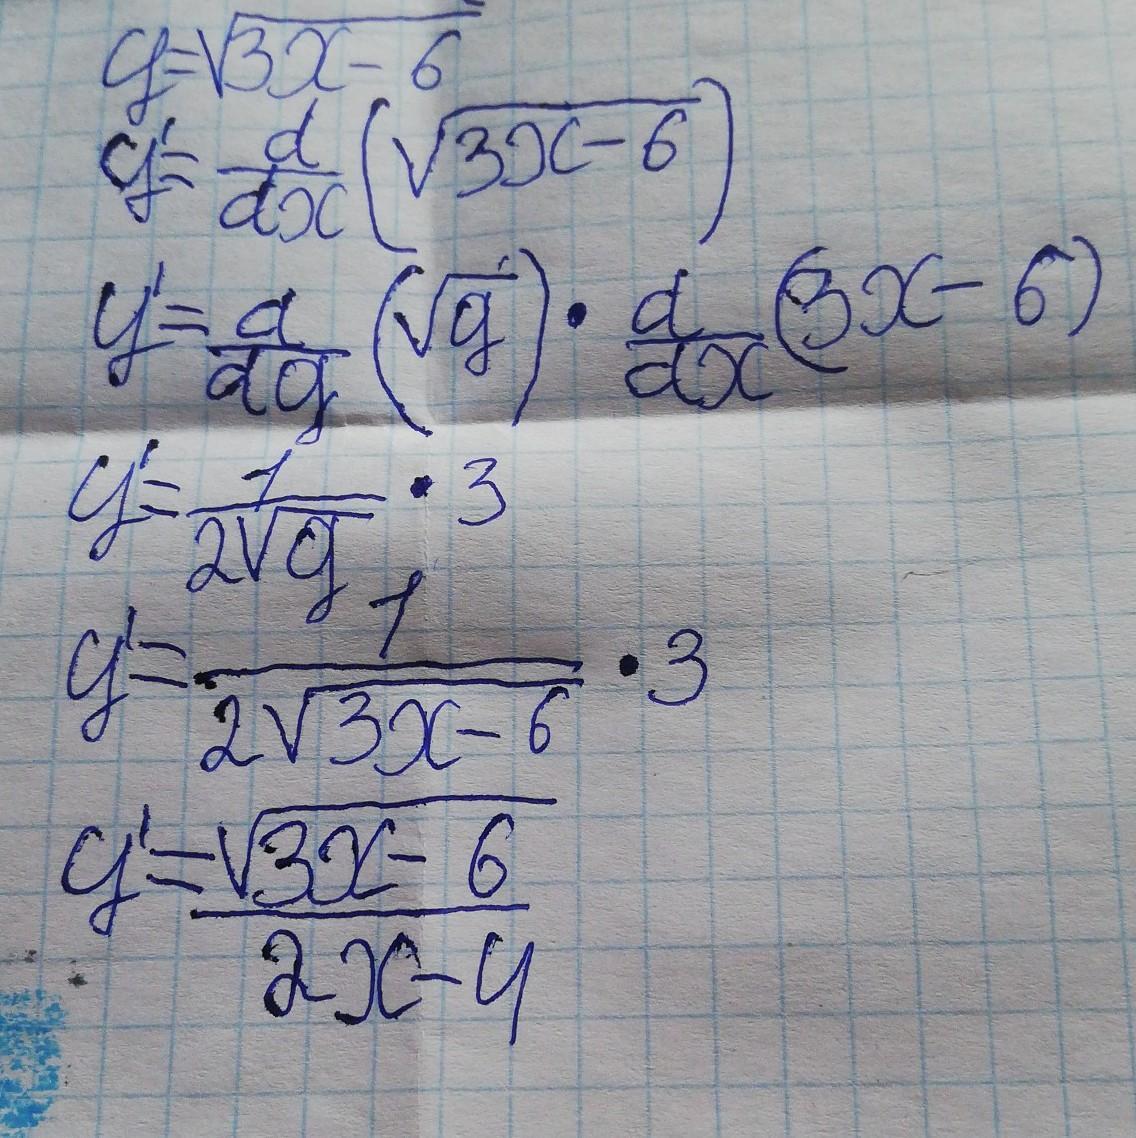 y=√(3x-6)
y'= d/dx (√(3x-6))
y'= d/dg (√g) · d/dx (3x-6)
y'= 1/(2√g) · 3
y'= 1/(2√(3x-6)) · 3
y'= √(3x-6)/(2x-4)